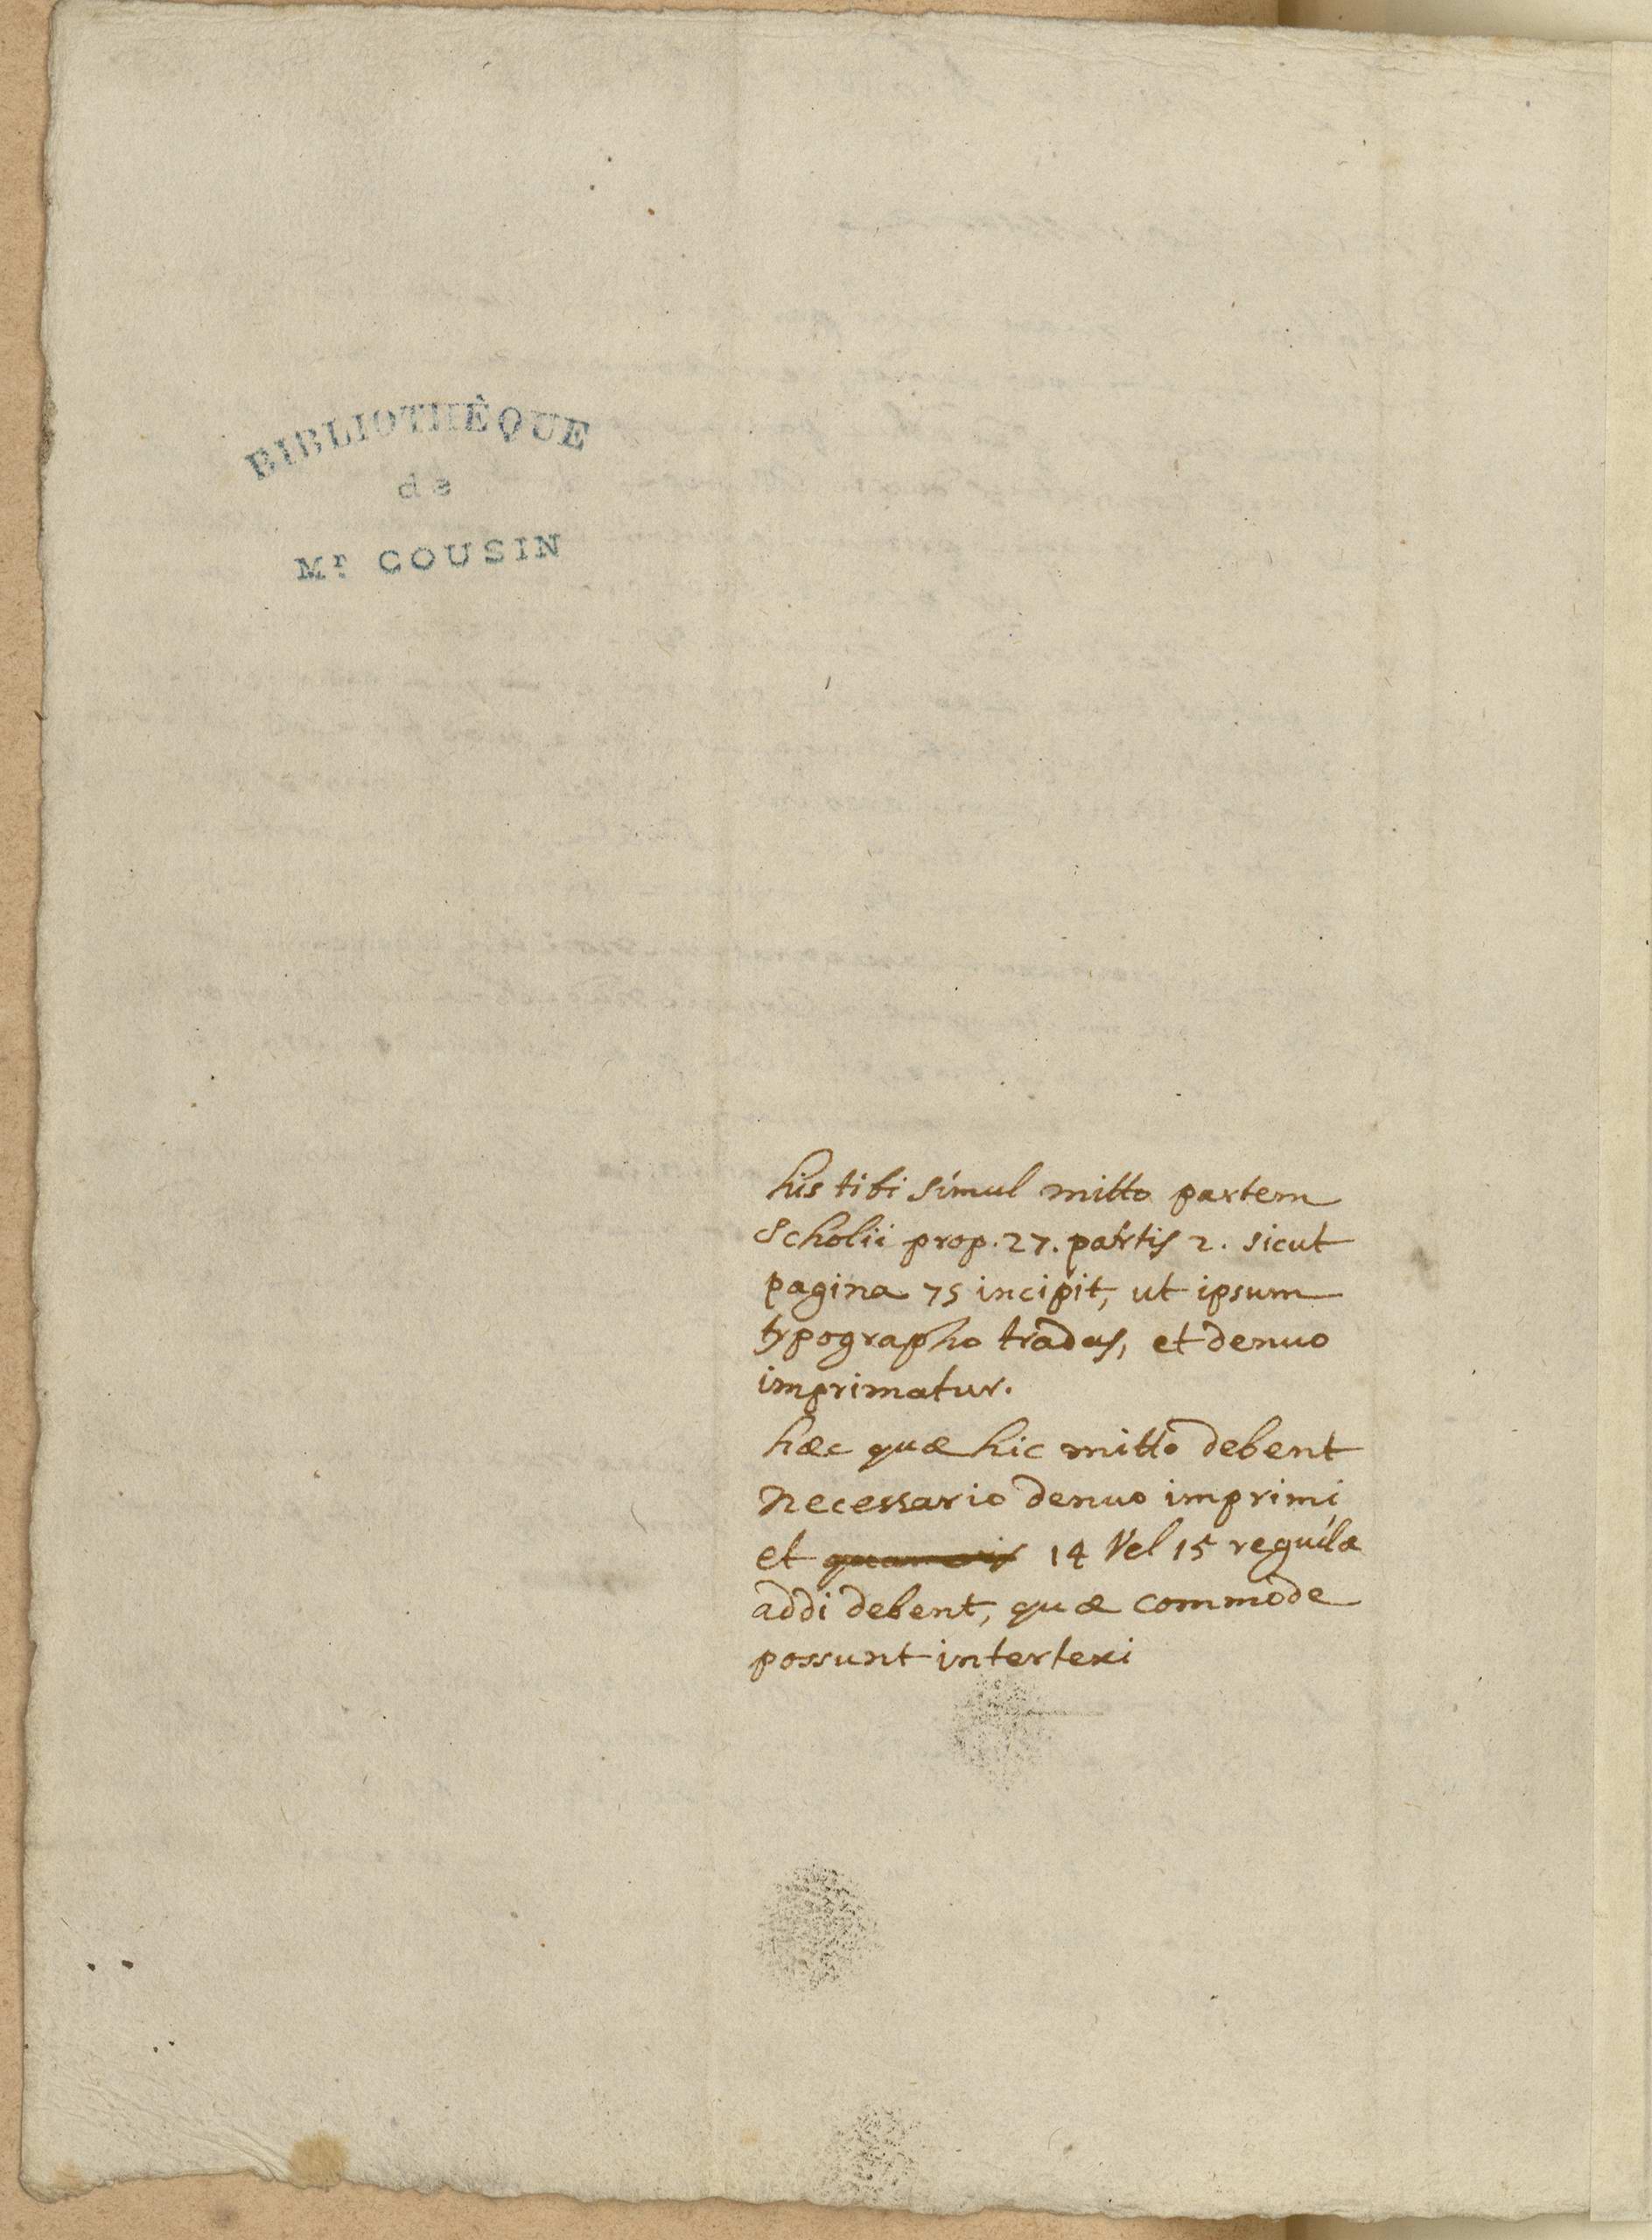 BIBLIOTHÊQUE
de
Mr. COUSIN
his tibi simul mitto partem
Scholii prop. 27. partis 2. sicut
pagina 75 incipit, ut ipsum
typographo tradas, et denuo
imprimatur.
hæc quæ hic mitto debent
necessario denuo imprimi
et quamvis 14 Vel 15 regulæ
addi debent, quæ commode
possunt intertexi